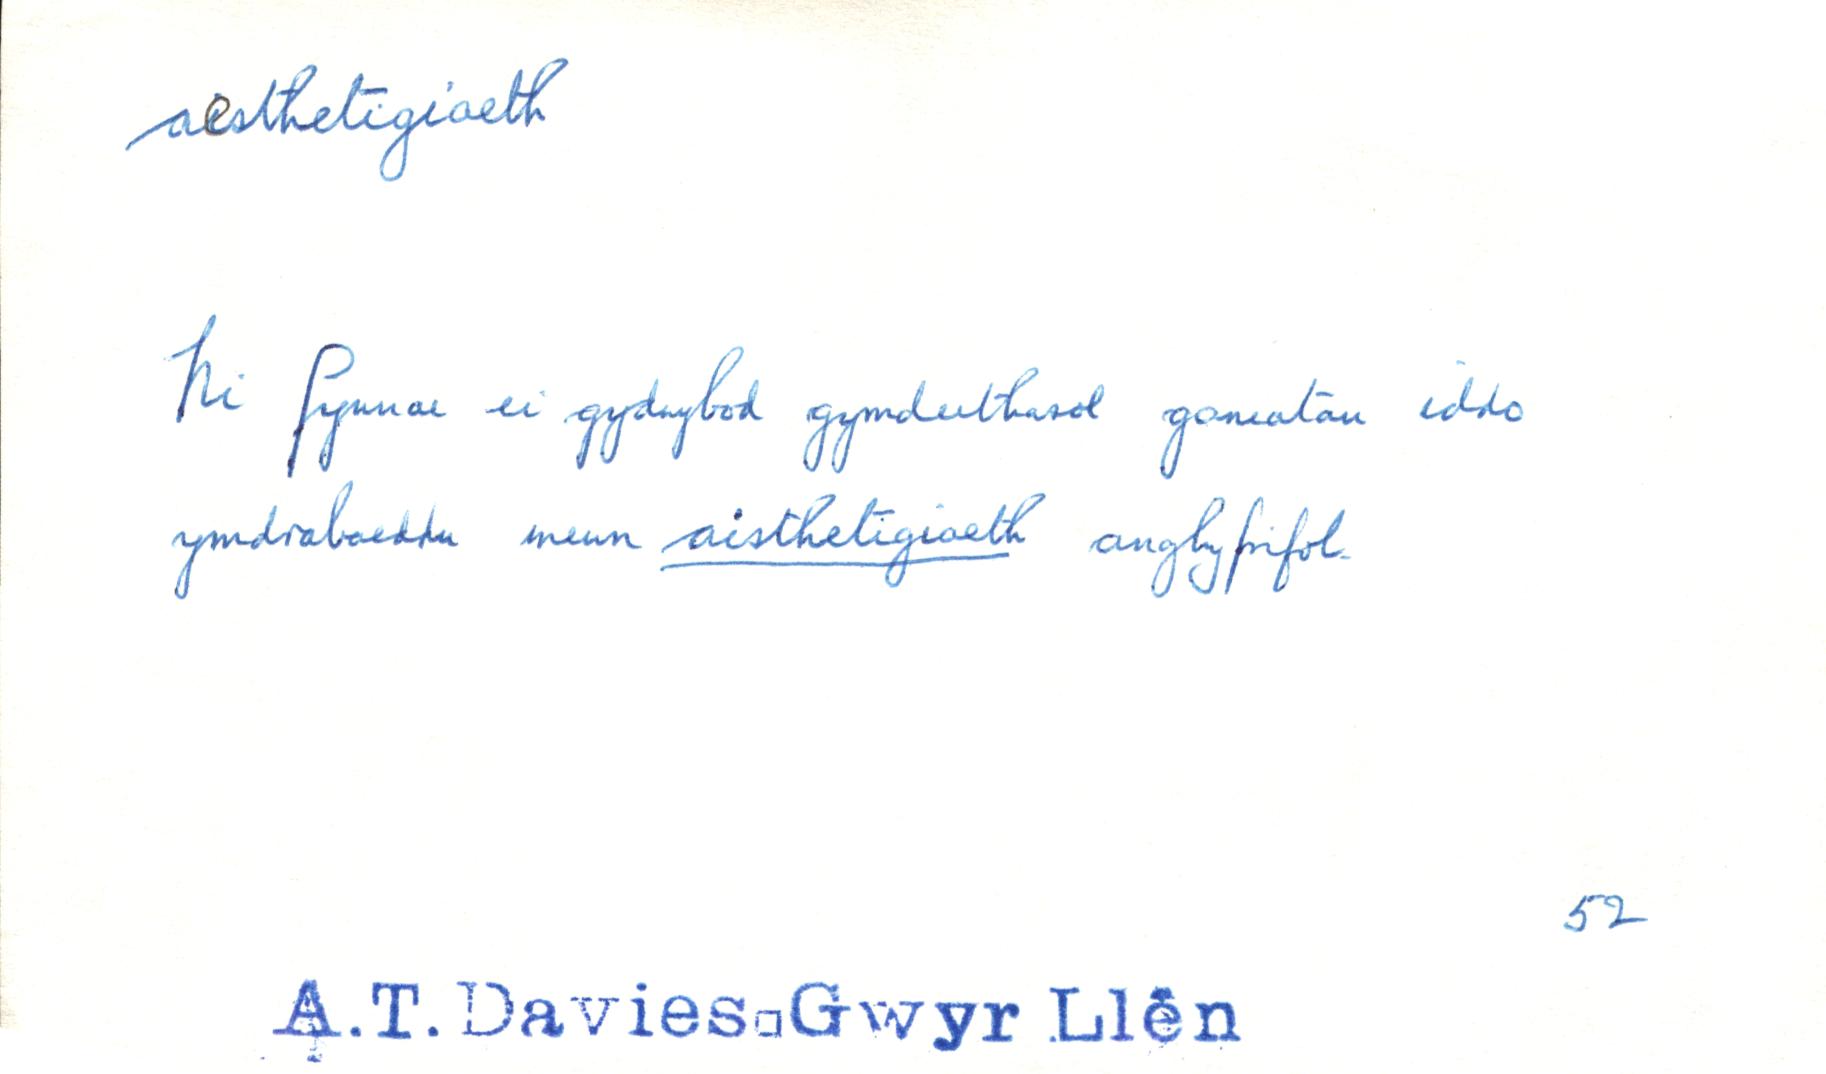 aesthetigiaeth
Ni fynnae ei gydwybod gymdeithasol ganiatáu iddo
ymdrabaeddu mewn aisthetigiaeth anghyfrifol.
52
A.T.Davies. Gwyr Llên